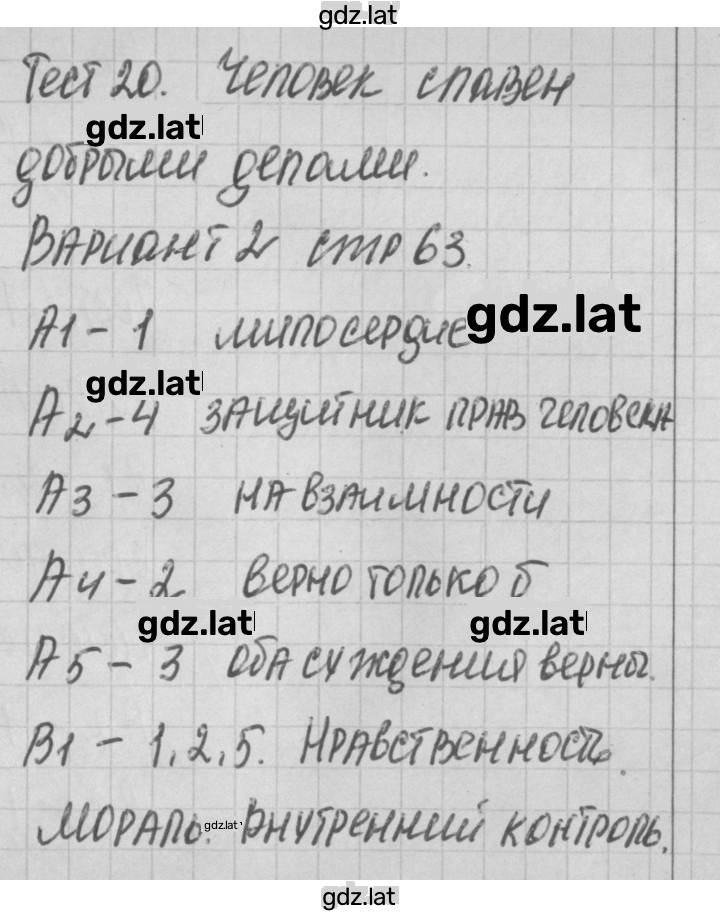 gdz.lat
Тест 20. Человек славен
gdz.lat
добрыми делами.
Вариант 2 стр 63.
А1 - 1 милосердие gdz.lat
gdz.lat
А2 - 4 защитник прав человека
А3 - 3 на взаимности
А4 - 2 верно только б
gdz.lat gdz.lat
А5 - 3 оба суждения верны.
В1 - 1, 2, 5. Нравственность.
Мораль. gdz.lat Внутренний контроль.
gdz.lat